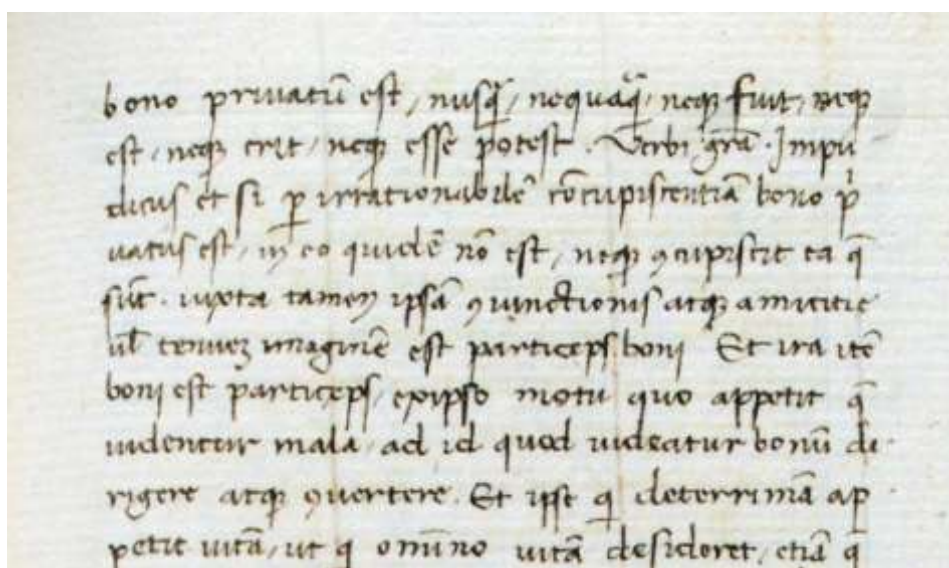 bono priuatū est, nusq̃, nequaq̃, neqꝫ fuit, neqꝫ
est, neqꝫ erit, neqꝫ esse potest. Verbi gr̃a. Impu
dicus et si ꝑ irrationabilẽ cõcupiscentiã bono p̃
uatus est, in eo quidẽ nõ est, neqꝫ ꝯcupiscit ea q̃
sũt. iuxta tamen ipsã ꝯiunctionis atqꝫ amicitie
ul̃ tenuez imaginẽ est particeps boni Et ira itẽ
boni est particeps, exipso motu quo appetit q̃
uidentur mala, ad id quod uideatur bonũ di
rigere atqꝫ ꝯuertere. Et ipse q̃ deterrimã ap
petit uitã, ut q̃ omnino uitã desideret, etiã q̃